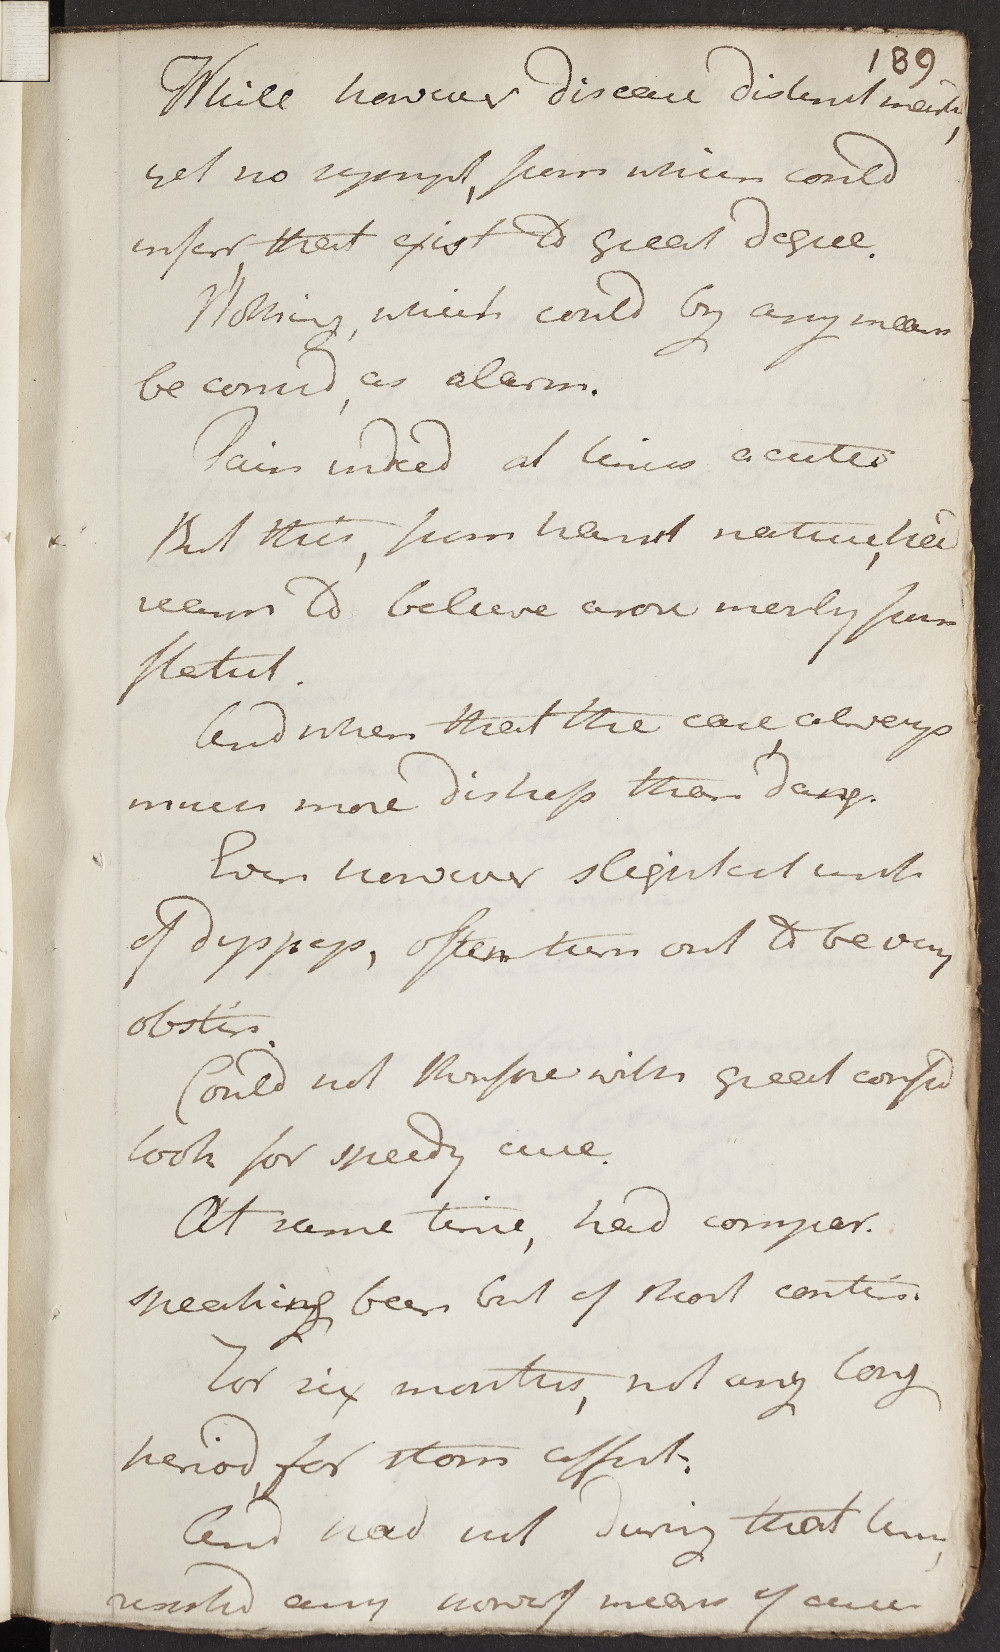 189
While however disease distinct mark,
yet no sympt, from which could
inferr, that exist to great degree.
Nothing, which could by any means
be consid, as alarm.
Pain indeed at times acute
But this, from transt nature, had
reason to believe arose merly from
flatul.
And when that the case, always
much more distress than dang.
Even however slightest instc
of dyspeps, often turn out to be very
obstin.
Could not therefore with great confid
look for speedy cure.
At same time, had compar.
speaking been but of short contin.
For six months, not any long
period, for stom affect.
And had not during that time,
resorted any powerf means of cure